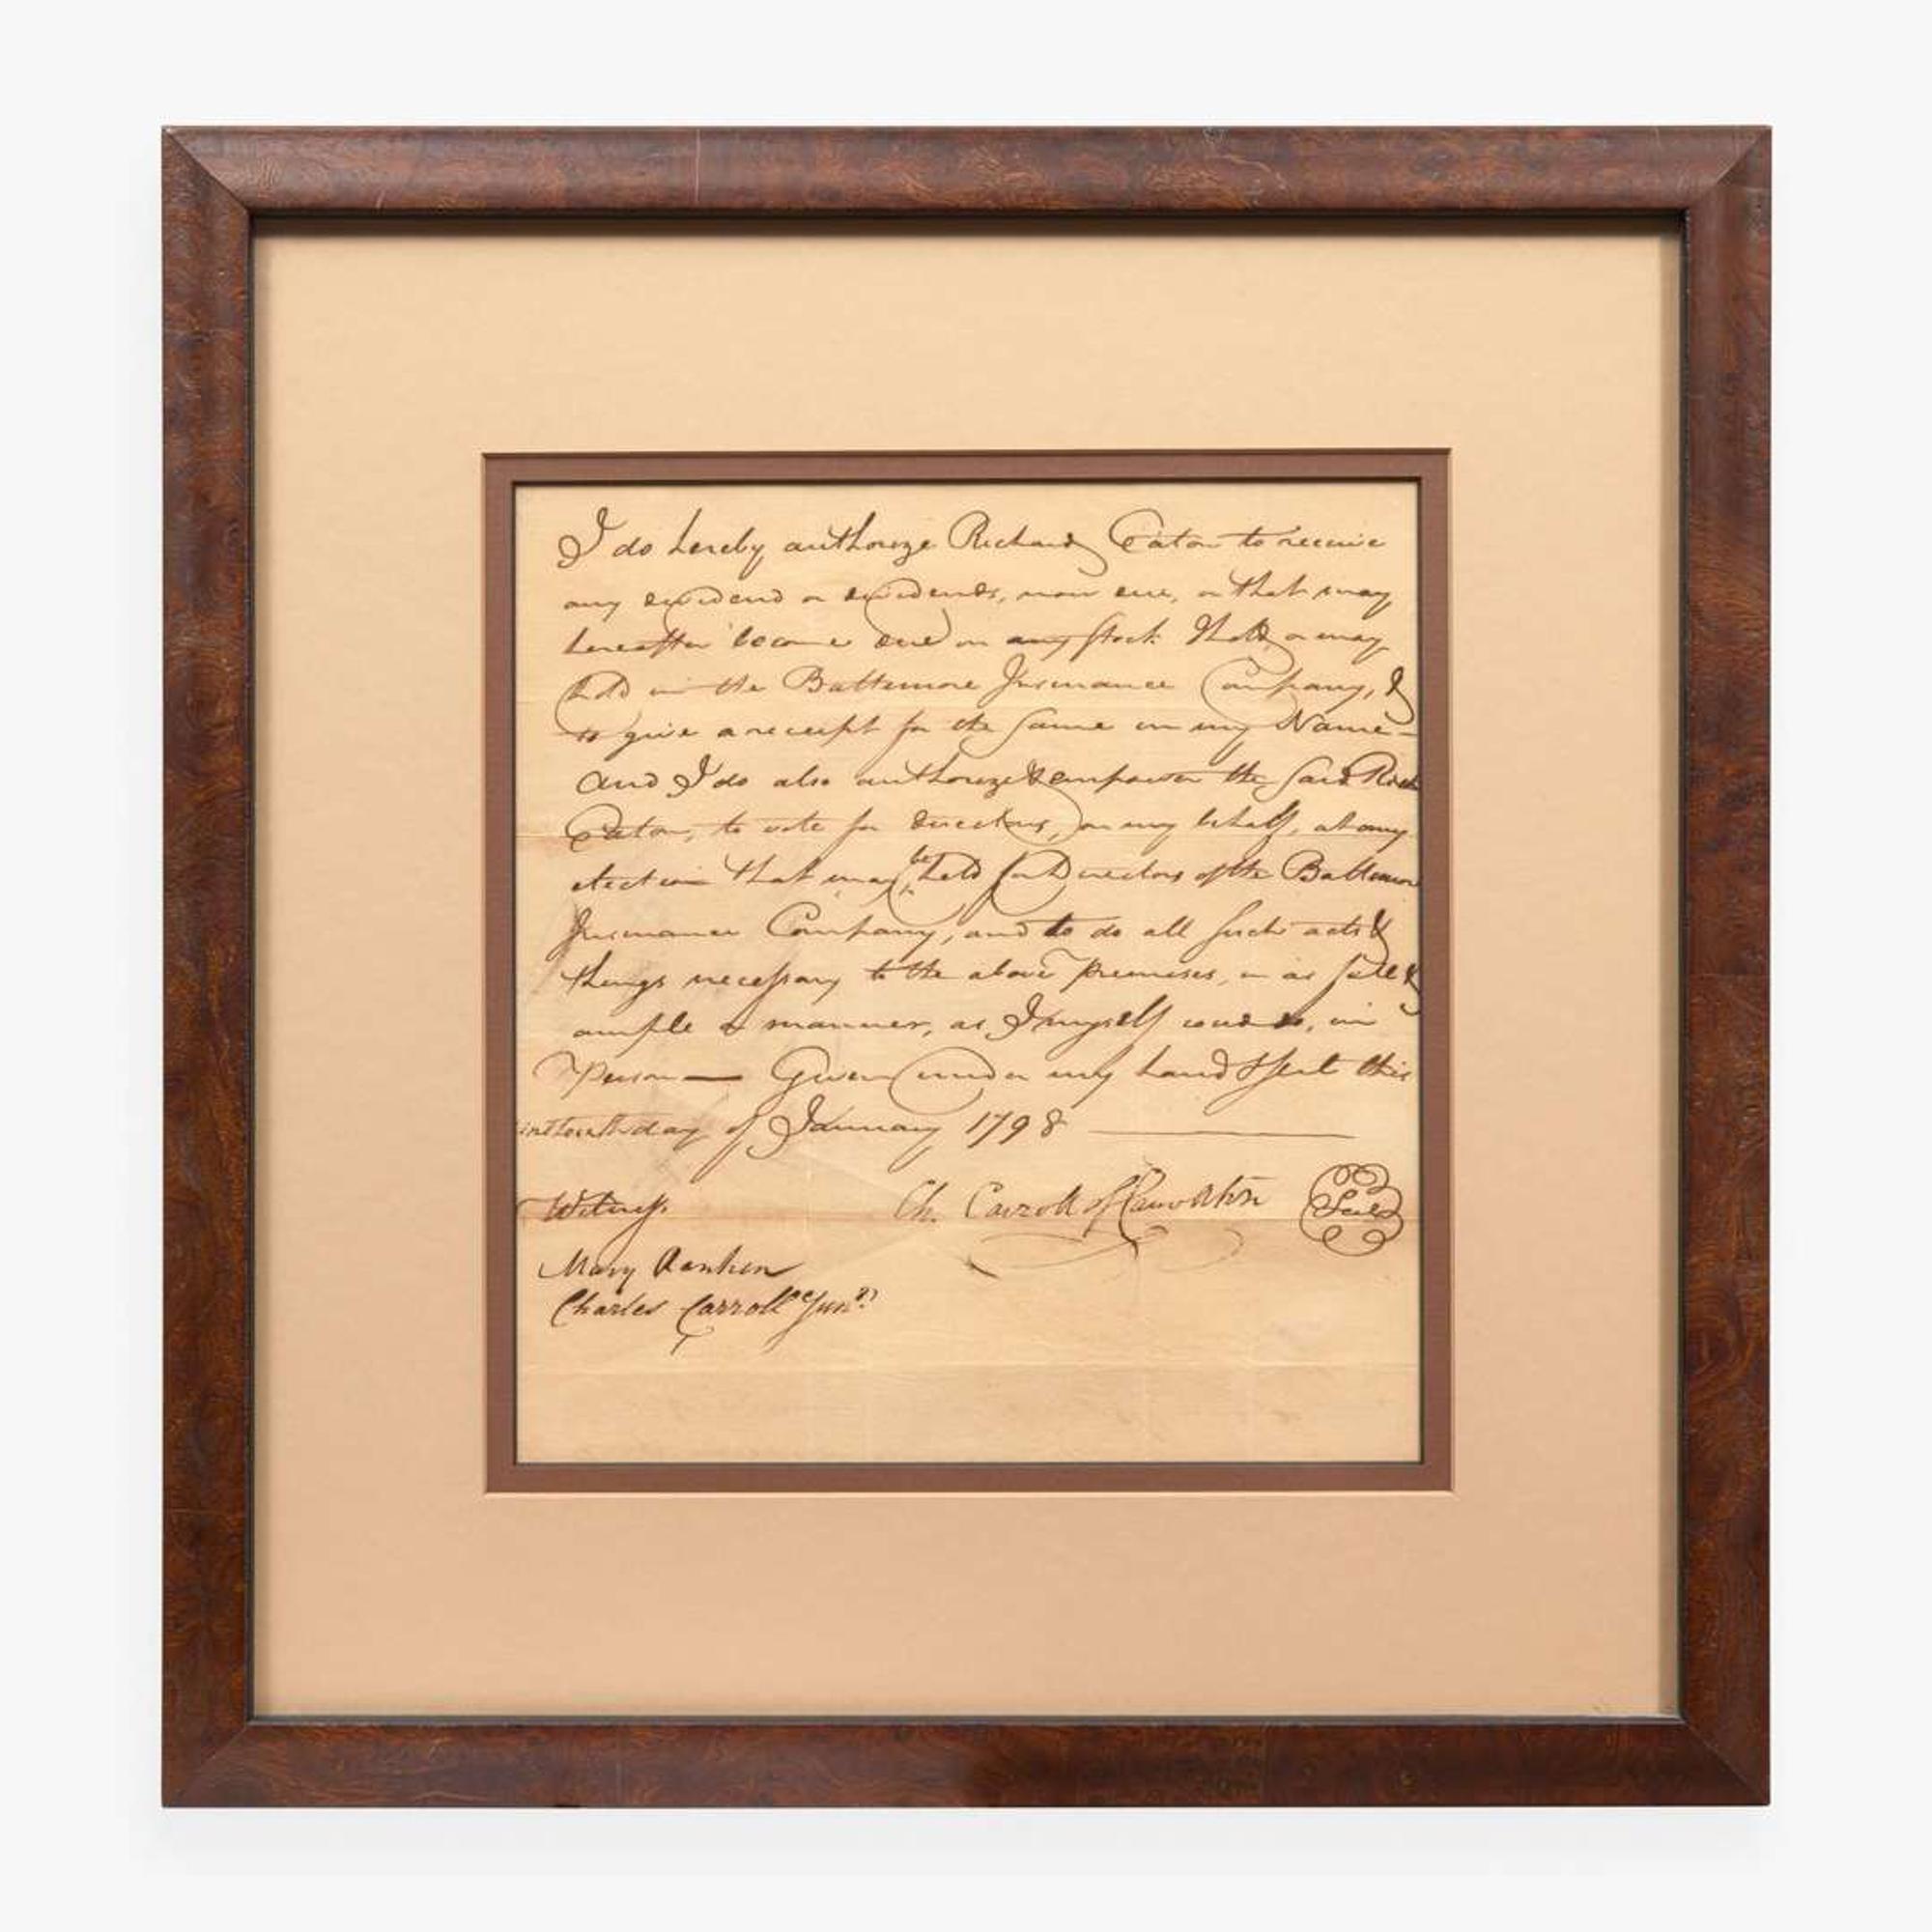 I do hereby authorize Richard Caton to receive
any dividend or dividends, now due, or that may
hereafter become due on any stock I hold, or may
hold in the Baltemore Insurance Company, &
to give a receipt for the same in my Name—
And I do also authorize & empower the said Rich
Caton, to vote for directors, on my behalf, at any
election that may be held for Directors of the Baltemore
Insurance Company, and to do all such acts &
things necessary to the above premises, in as full &
ample a manner, as I myself could do, in
Person— Given under my hand & seal this
day of January 1798
Witness Ch. Carroll of Carrollton Seal
Mary Rankin
Charles Carroll Junr.